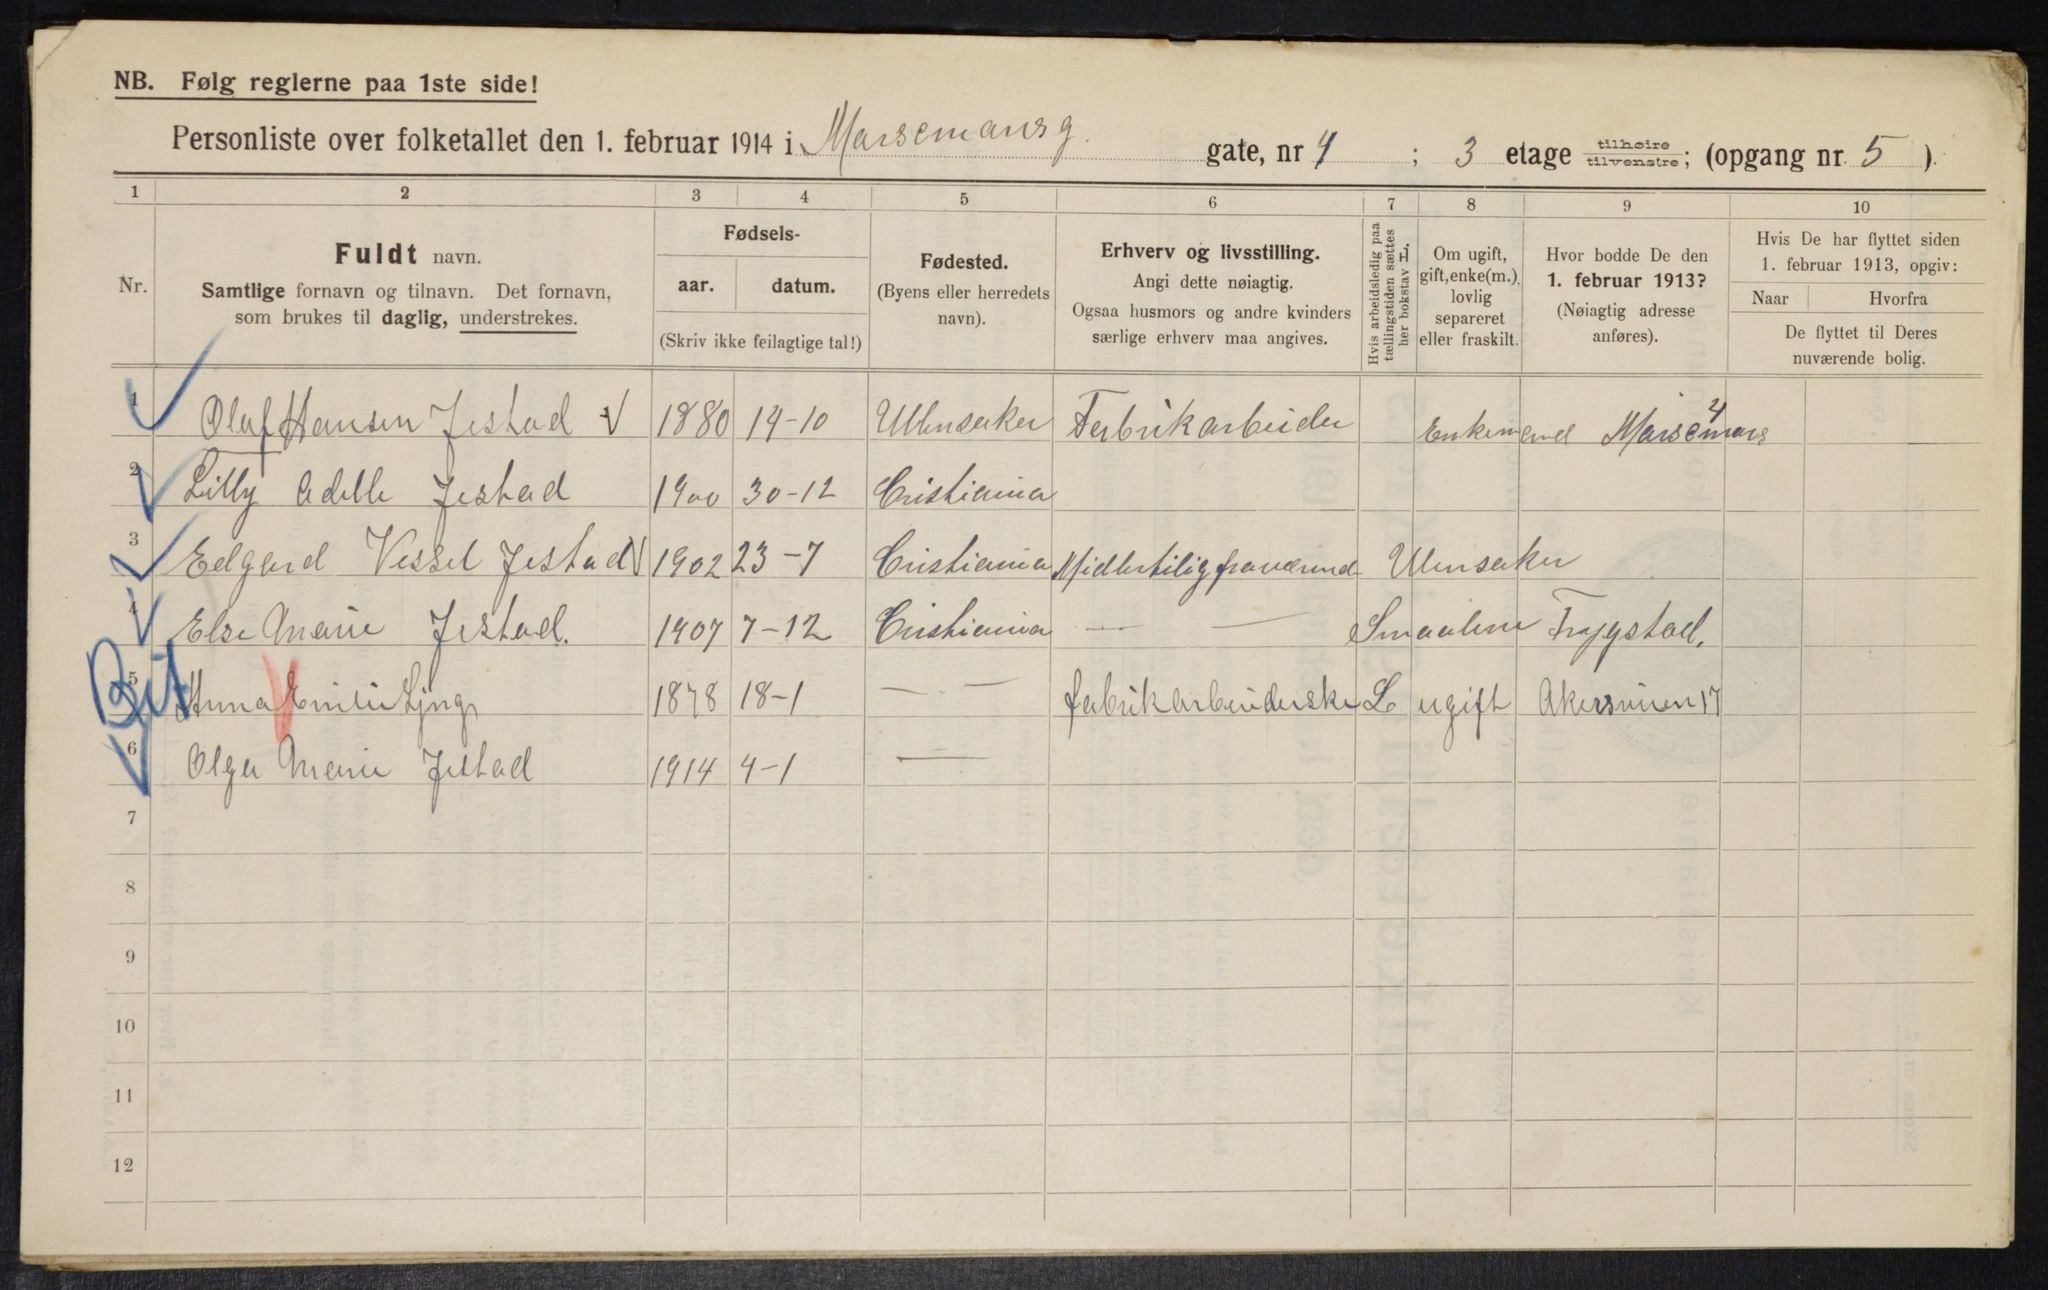 NB. Følg reglerne paa 1ste side!
Personliste over folketallet den 1. februar 1914 i Marsemansg. gate, nr 4 ; 3 etage tilhøire tilvenstre; (opgang nr. 5 ).
1 2 3 4 5 6 7 8 9 10
Nr.
Fuldt navn.
Samtlige fornavn og tilnavn. Det fornavn,
som brukes til daglig, understrekes.
Fødsels-
aar. datum.
(Skriv ikke feilagtige tal!)
Fødested.
(Byens eller herredets
navn).
Erhverv og livsstilling.
Angi dette nøiagtig.
Ogsaa husmors og andre kvinders
særlige erhverv maa angives.
Hvis arbeidsledig paa
tællingstiden sættes
her bokstav L.
Om ugift,
gift, enke(m.),
lovlig
separeret
eller fraskilt.
Hvor bodde De den
1. februar 1913?
(Nøiagtig adresse
anføres).
Hvis De har flyttet siden
1. februar 1913, opgiv:
Naar Hvorfra
De flyttet til Deres
nuværende bolig.
1 Olaf Hansen Jestad 1880 14-10 Ullensaker Fabrikarbeider Enkemand Marsemans 4
2 Lilly Adelle Jestad 1900 30-12 Cristiania
3 Edgard Vessel Jestad 1902 23-7 Cristiania Midlertilig fraværend Ulensaker
4 Else Marie Jestad. 1907 7-12 Cristiania — — Smaalene Trygstad.
5 Anna Emilie Lyng 1878 18-1 — — fabrikarbeiderske L ugift Akersveien 17
6 Olga Marie Jestad 1914 4-1 —
7
8
9
10
11
12